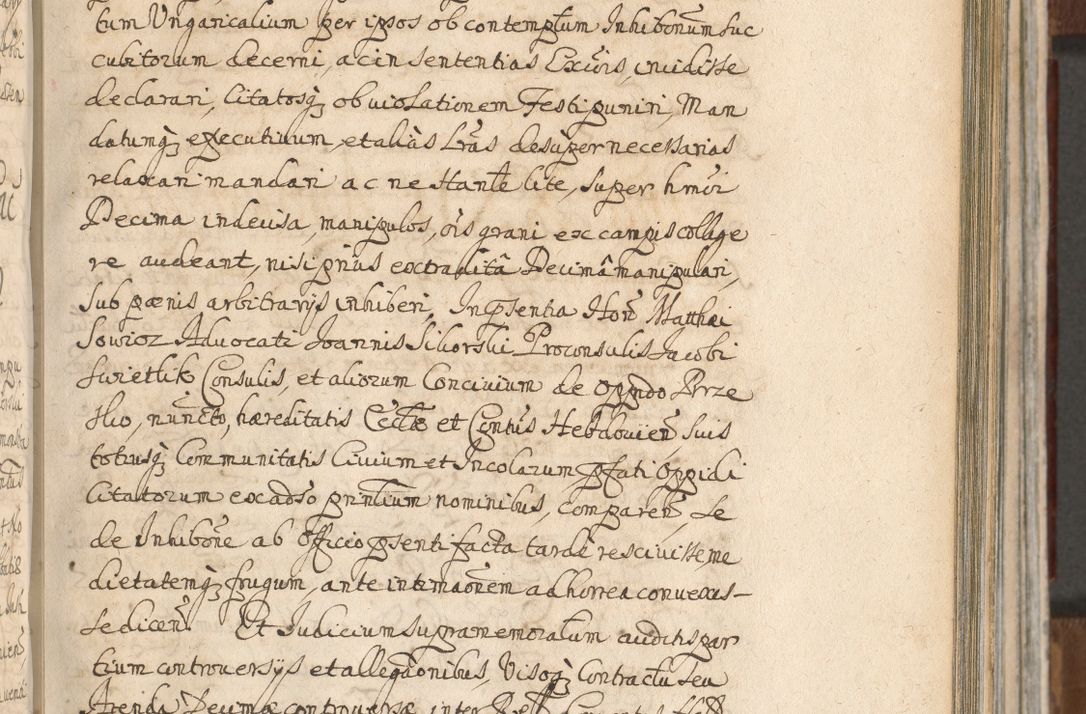 tum Ungaricalium per ipsos ob contemptum Inhibonum suc
cubitorum decerni, ac in sententias Excõis, incidisse
declarari, Citatosq₃ ob violationem Festi puniri, Man
datumq₃ executivum, et aliàs Lrãs desuper necessarias
relaxari mandari ac ne stante lite, super hmõi
Decima indecisa, manipulos, oĩs grani ex campis collige
re audeant, nisi priùs extraditâ Decimâ manipulari,
sub pœnis arbitrarijs inhiberi, In pśentia Hon̄ Matthæi
Sowicz Advocati Joannis Sikorski Proconsulis Jacobi
Swietlik Consulis, et aliorum Concivium de oppido Brze
sko, nuñcto, hæreditatis Ecctæ et Contùs Hebdovieñ, suis
totiusq₃ Communitatis Civium et Incolarum pfati oppidi
Citatorum ex adso prñtium nominibus, compareñ, se
de Inhibõne ab Officio psenti facta tardè rescivisse me
dietatemq₃ frugum, ante intimaõnem ad horrea convexis–
se diceñ. Et Judicium supramemoratum auditis par
tium controversijs et allegaõnibus, Visoq₃ Contractu seu
Arenda Decimæ controversæ inter